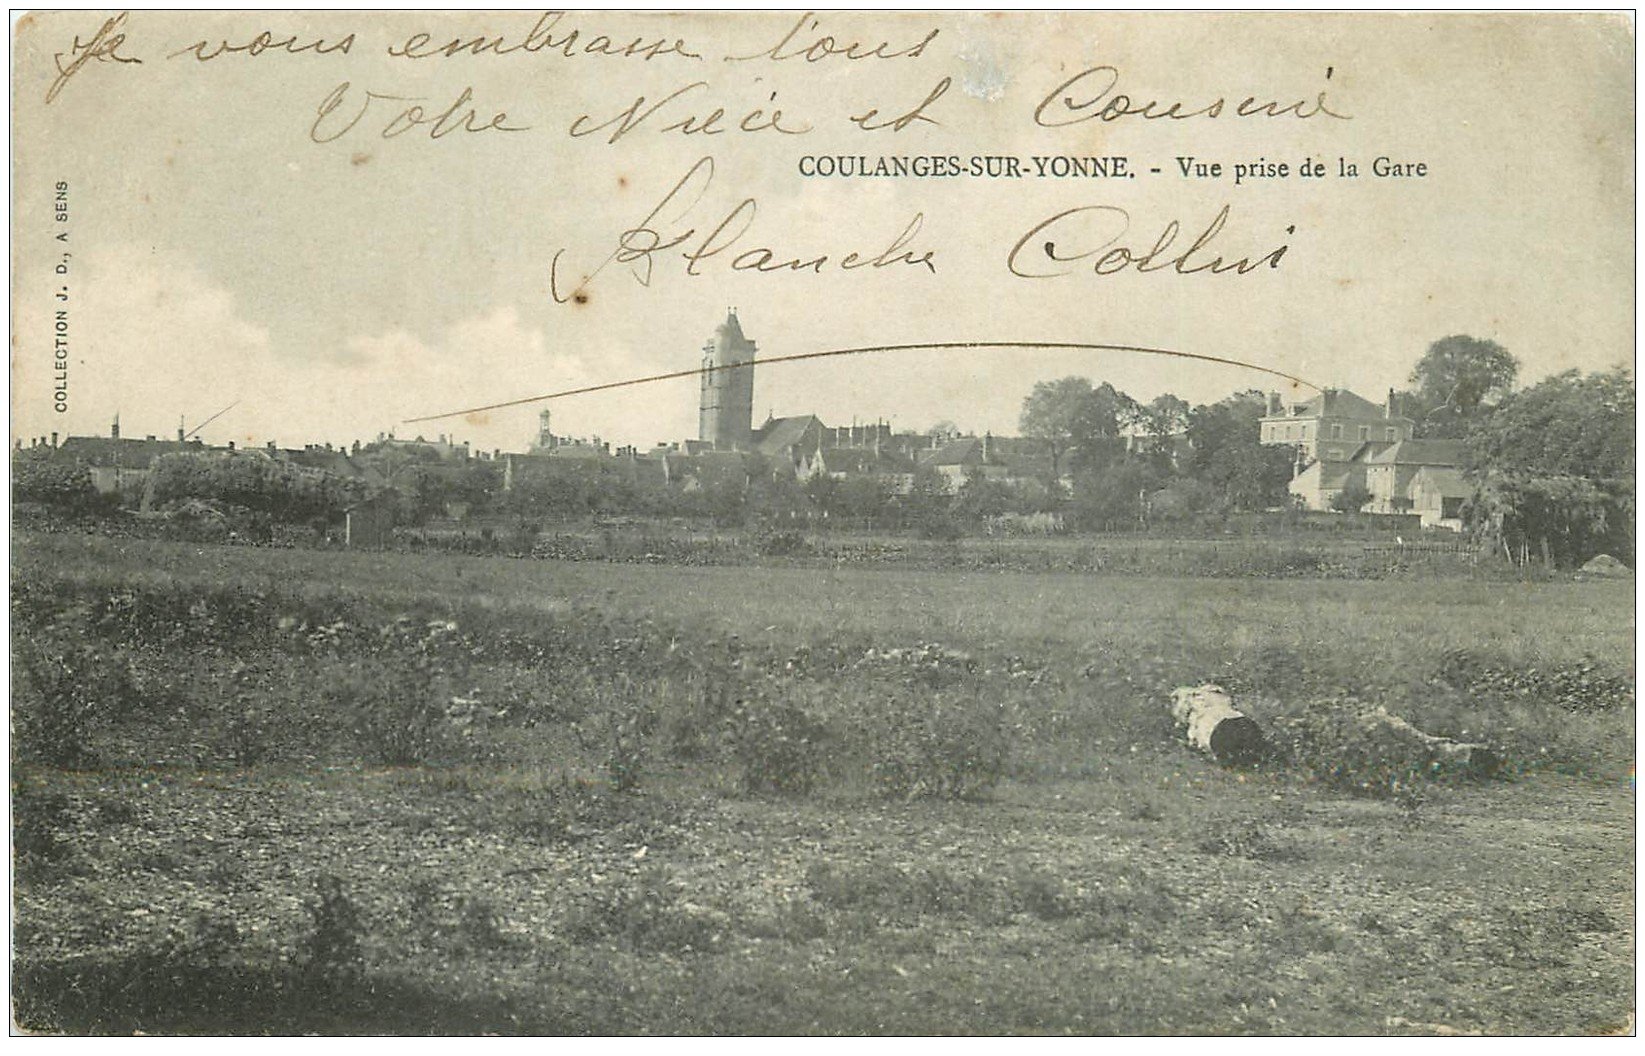 Je vous embrasse tous
Votre Nièce et Cousine
COULANGES-SUR-YONNE. - Vue prise de la Gare
Blanche
COLLECTION J. D., A SENS